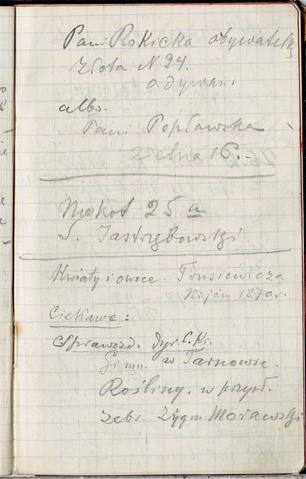 Pani Rokicka obywatelk
Złota N 94.
o dywani
albo.
Pani Popławska
Zielna 16.-
Mokot 25 a
S. Jastrzębowski
Kwiaty i owoce.
Kijów 1870 r.
Ciekawe:
Sprawozd. dyr. C. Kr.
Gimn. w Tarnowie.
Rośliny. w przysł.
zebr. Zygm Morawski